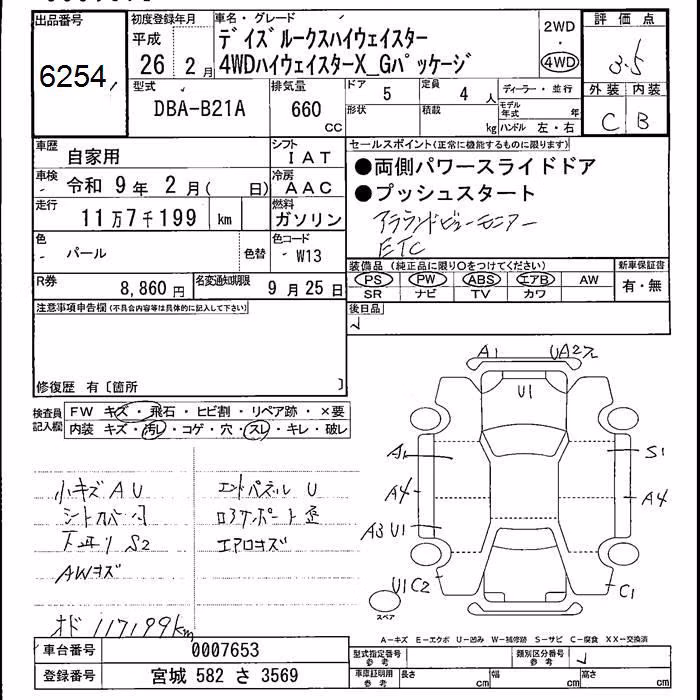 出品番号
6254
初度登録年月
平成
26 2月
車名・グレード
デイズルークスハイウェイスター
4WDハイウェイスターX_Gパッケージ
2WD
・
4WD
評価点
3.5
外装 内装
C B
型式
DBA-B21A
排気量
660
CC
ドア
5
形状
定員
4 人
積載
kg
ディーラー・並行
モデル年式 年
ハンドル 左・右
車歴
自家用
シフト
IAT
車検
令和 9年 2月( 日)
冷房
AAC
走行
11万7千199 km
燃料
ガソリン
色
パール
色替
色コード
W13
R券
8,860円
名変通知期限
9月25日
セールスポイント(正常に機能するものに限ります)
●両側パワースライドドア
●プッシュスタート
アラウンドビューモニター
ETC
装備品(純正品に限り○をつけてください)
PS PW ABS エアB AW
SR ナビ TV カワ
新車保証書
有・無
後日品
注意事項申告欄(不具合内容等は具体的に記入して下さい)
修復歴 有〔箇所 〕
検査員
記入欄
FW キズ・飛石・ヒビ割・リペア跡・×要
内装 キズ・汚レ・コゲ・穴・スレ・キレ・破レ
小キズ A U
シートカバー付
下廻り S2
AWキズ
オド 117199km
エンドパネル U
エアロキズ
A1
UA2
U1
A1
S1
A4
A4
A3 U1
U1 C2
C1
スペア
A-キズ E-エクボ U-凹み W-補修跡 S-サビ C-腐食 XX-交換済
車台番号
0007653
登録番号
宮城 582 さ 3569
型式指定番号
参考
類別区分番号
参考
車庫証明用
参考
長さ cm
幅 cm
高さ cm